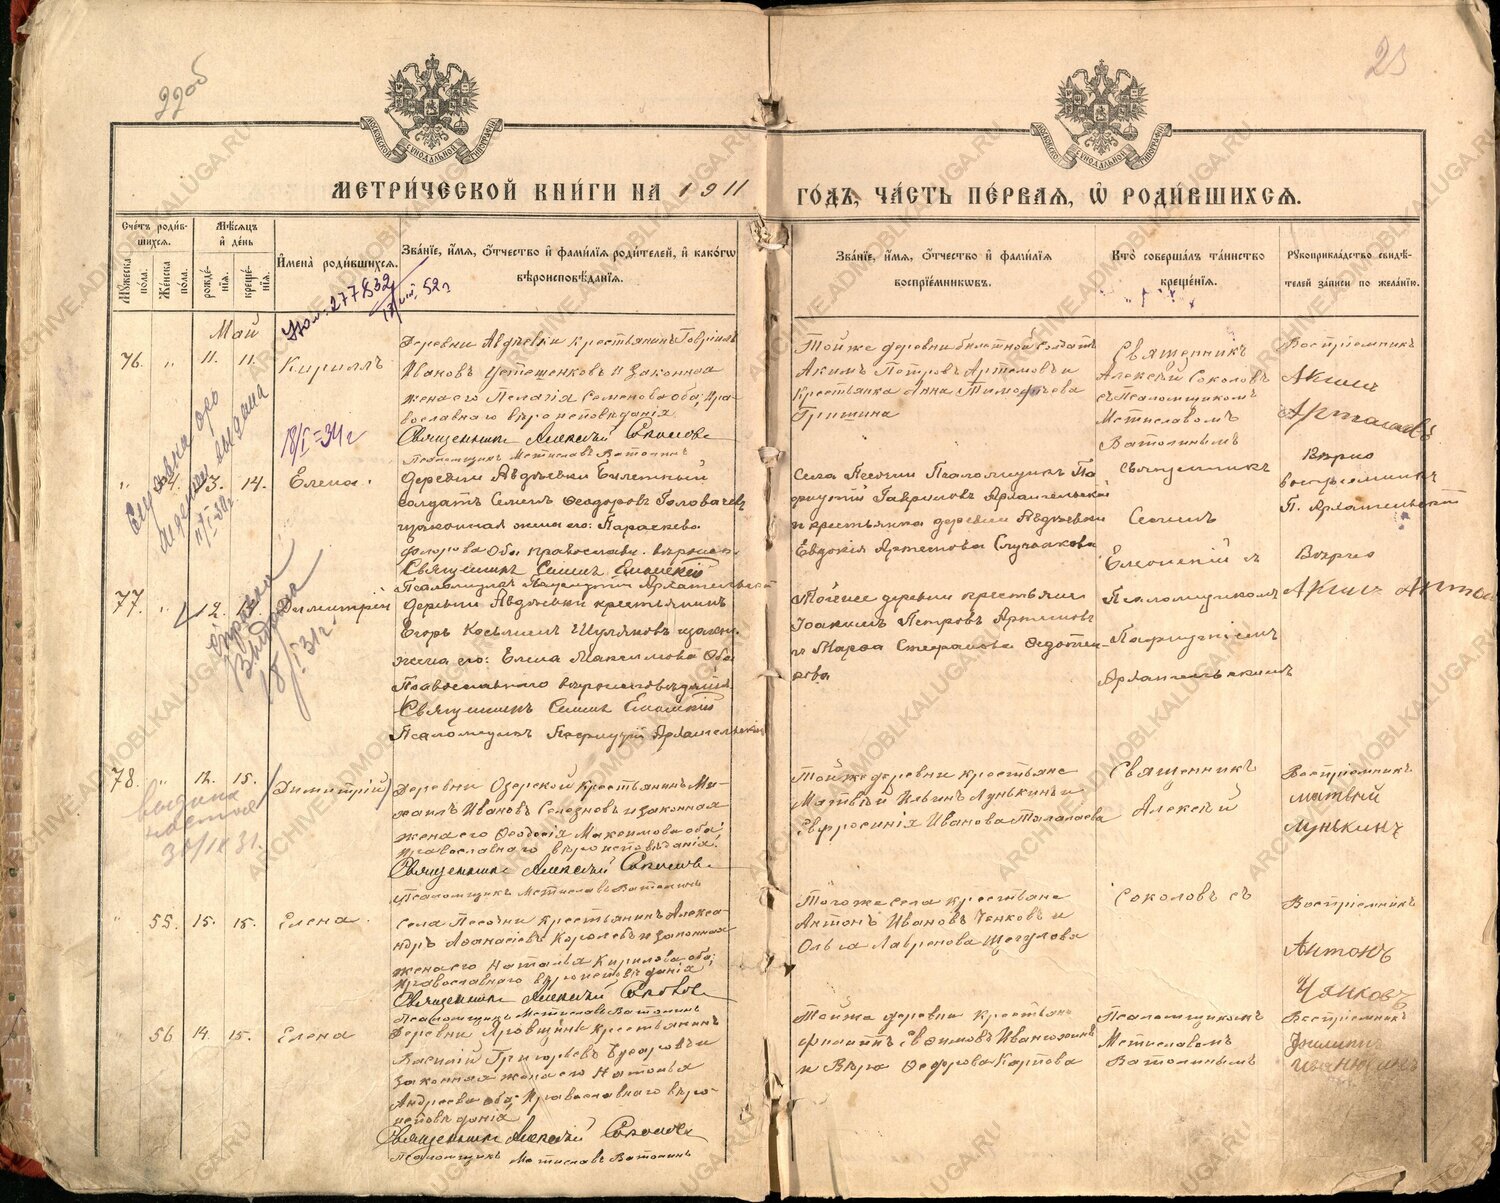 22об
23
МОСКОВСКОЙ СѴНОДАЛЬНОЙ ТИПОГРАФІИ
МОСКОВСКОЙ СѴНОДАЛЬНОЙ ТИПОГРАФІИ
МЕТРИ́ЧЕСКОЙ КНИ́ГИ НА 1911 ГО́ДЪ, ЧА́СТЬ ПЕ́РВАЯ, Ѽ РОДИ́ВШИХСЯ.
Сче́тъ роди́в-
шихся.
Му́жеска по́ла.
Же́нска по́ла.
Мѣ́сяцъ
и҆ де́нь
рожде́-
нія.
креще́-
нія.
И҆мена̀ роди́вшихся.
Зва́ніе, и҆́мя, ѻ҆́тчество и҆ фами́лія роди́телей, и҆ како́гѡ
вѣроисповѣ́данія.
Зва́ніе, и҆́мя, ѻ҆́тчество и҆ фами́лія
воспріе́мниковъ.
Кто̀ соверша́лъ та́инство
креще́нія.
Рукоприкла́дство свидѣ́-
телей за́писи по жела́нію.
277832
52г
Май
76. " 11. 11. Кириллъ
Деревни Авдѣевки крестьянинъ Гавріилъ
Ивановъ Устешенковъ и законная
жена его Пелагія Семенова оба, пра-
вославнаго вѣроисповѣданія
Священникъ Алексѣй Соколовъ
Псаломщикъ Мстиславъ Ватолинъ
Той же деревни билетной солдатъ
Акимъ Петровъ Артемовъ и
крестьянка Анна Тимофѣева
Гришина
Священникъ
Алексѣй Соколовъ
съ Псаломщикомъ
Мстиславомъ
Ватолинымъ
Воспріемникъ
Акимъ
Артамовъ
18/I-34г
" 13. 14. Елена.
Деревни Авдѣевки билетный
солдатъ Семенъ Ѳеодоровъ Головачевъ
и законная жена его: Параскева
Флорова Оба православн. вѣроисп.
Священникъ Симеонъ Еленскій
Псаломщикъ Пафнутій Архангельскій
Села Песочни Псаломщикъ Па
фнутій Гавриловъ Архангельскій
и крестьянка деревни Авдѣевки
Евдокія Артемова Случакова
Священникъ
Симеонъ
Еленскій и
Вѣрно
воспріемникъ
П. Архангельскій
Вѣрно
77. " 12. Димитрій
Деревни Авдѣевки крестьянинъ
Егоръ Косьминъ Шуляковъ и законн.
жена его: Елена Максимова Оба
Православнаго вѣроисповѣданія
Священникъ Симеонъ Еленскій
Псаломщикъ Пафнутій Архангельскій
Той же деревни крестьяне
Іоакимъ Петровъ Артемовъ
и Марѳа Стефанова Ѳедоте-
рова
Псаломщикомъ
Пафнутіемъ
Архангельскимъ
Акимъ
Справка
Выдана
18/I 31г.
78. " 12. 15. Димитрій
Деревни Озерской крестьянинъ Ми-
хаилъ Ивановъ Селезневъ и законная
жена его Ѳеодосія Максимова оба,
православнаго вѣроисповѣданія.
Священникъ Алексѣй Соколовъ
Псаломщикъ Мстиславъ Ватолинъ
Той же деревни крестьяне
Матвѣй Ильинъ Лунькинъ и
Евфросинія Иванова Талалаева
Священникъ
Алексѣй
Воспріемникъ
Матвѣй
Лунькинъ
выдана
31.
" 55. 15. 15. Елена.
Села Песочни крестьянинъ Алекса-
ндръ Аѳанасіевъ Королевъ и законная
жена его Наталья Кирилова оба,
православнаго вѣроисповѣданія
Священникъ Алексѣй Соколовъ
Псаломщикъ Мстиславъ Ватолинъ
Того же села крестьяне
Антонъ Ивановъ Ченковъ и
Ольга Лавренова Щегулова
Соколовъ съ
Воспріемникъ
Антонъ
Чянковъ
56 14. 15. Елена
Деревни Яровщины крестьянинъ
Василій Григорьевъ Бударовъ и
законная жена его Наталья
Андреева оба, православнаго вѣро-
исповѣданія
Священникъ Алексѣй Соколовъ
Псаломщикъ Мстиславъ Ватолинъ
Той же деревни крестьян
Филиппъ Евфимовъ Иванюшинъ
и Вѣра Ѳедорова Карпова
Псаломщикомъ
Мстиславомъ
Ватолинымъ
Воспріемникъ
Филиппъ
Иванюшинъ
ARCHIVE.ADMOBLKALUGA.RU